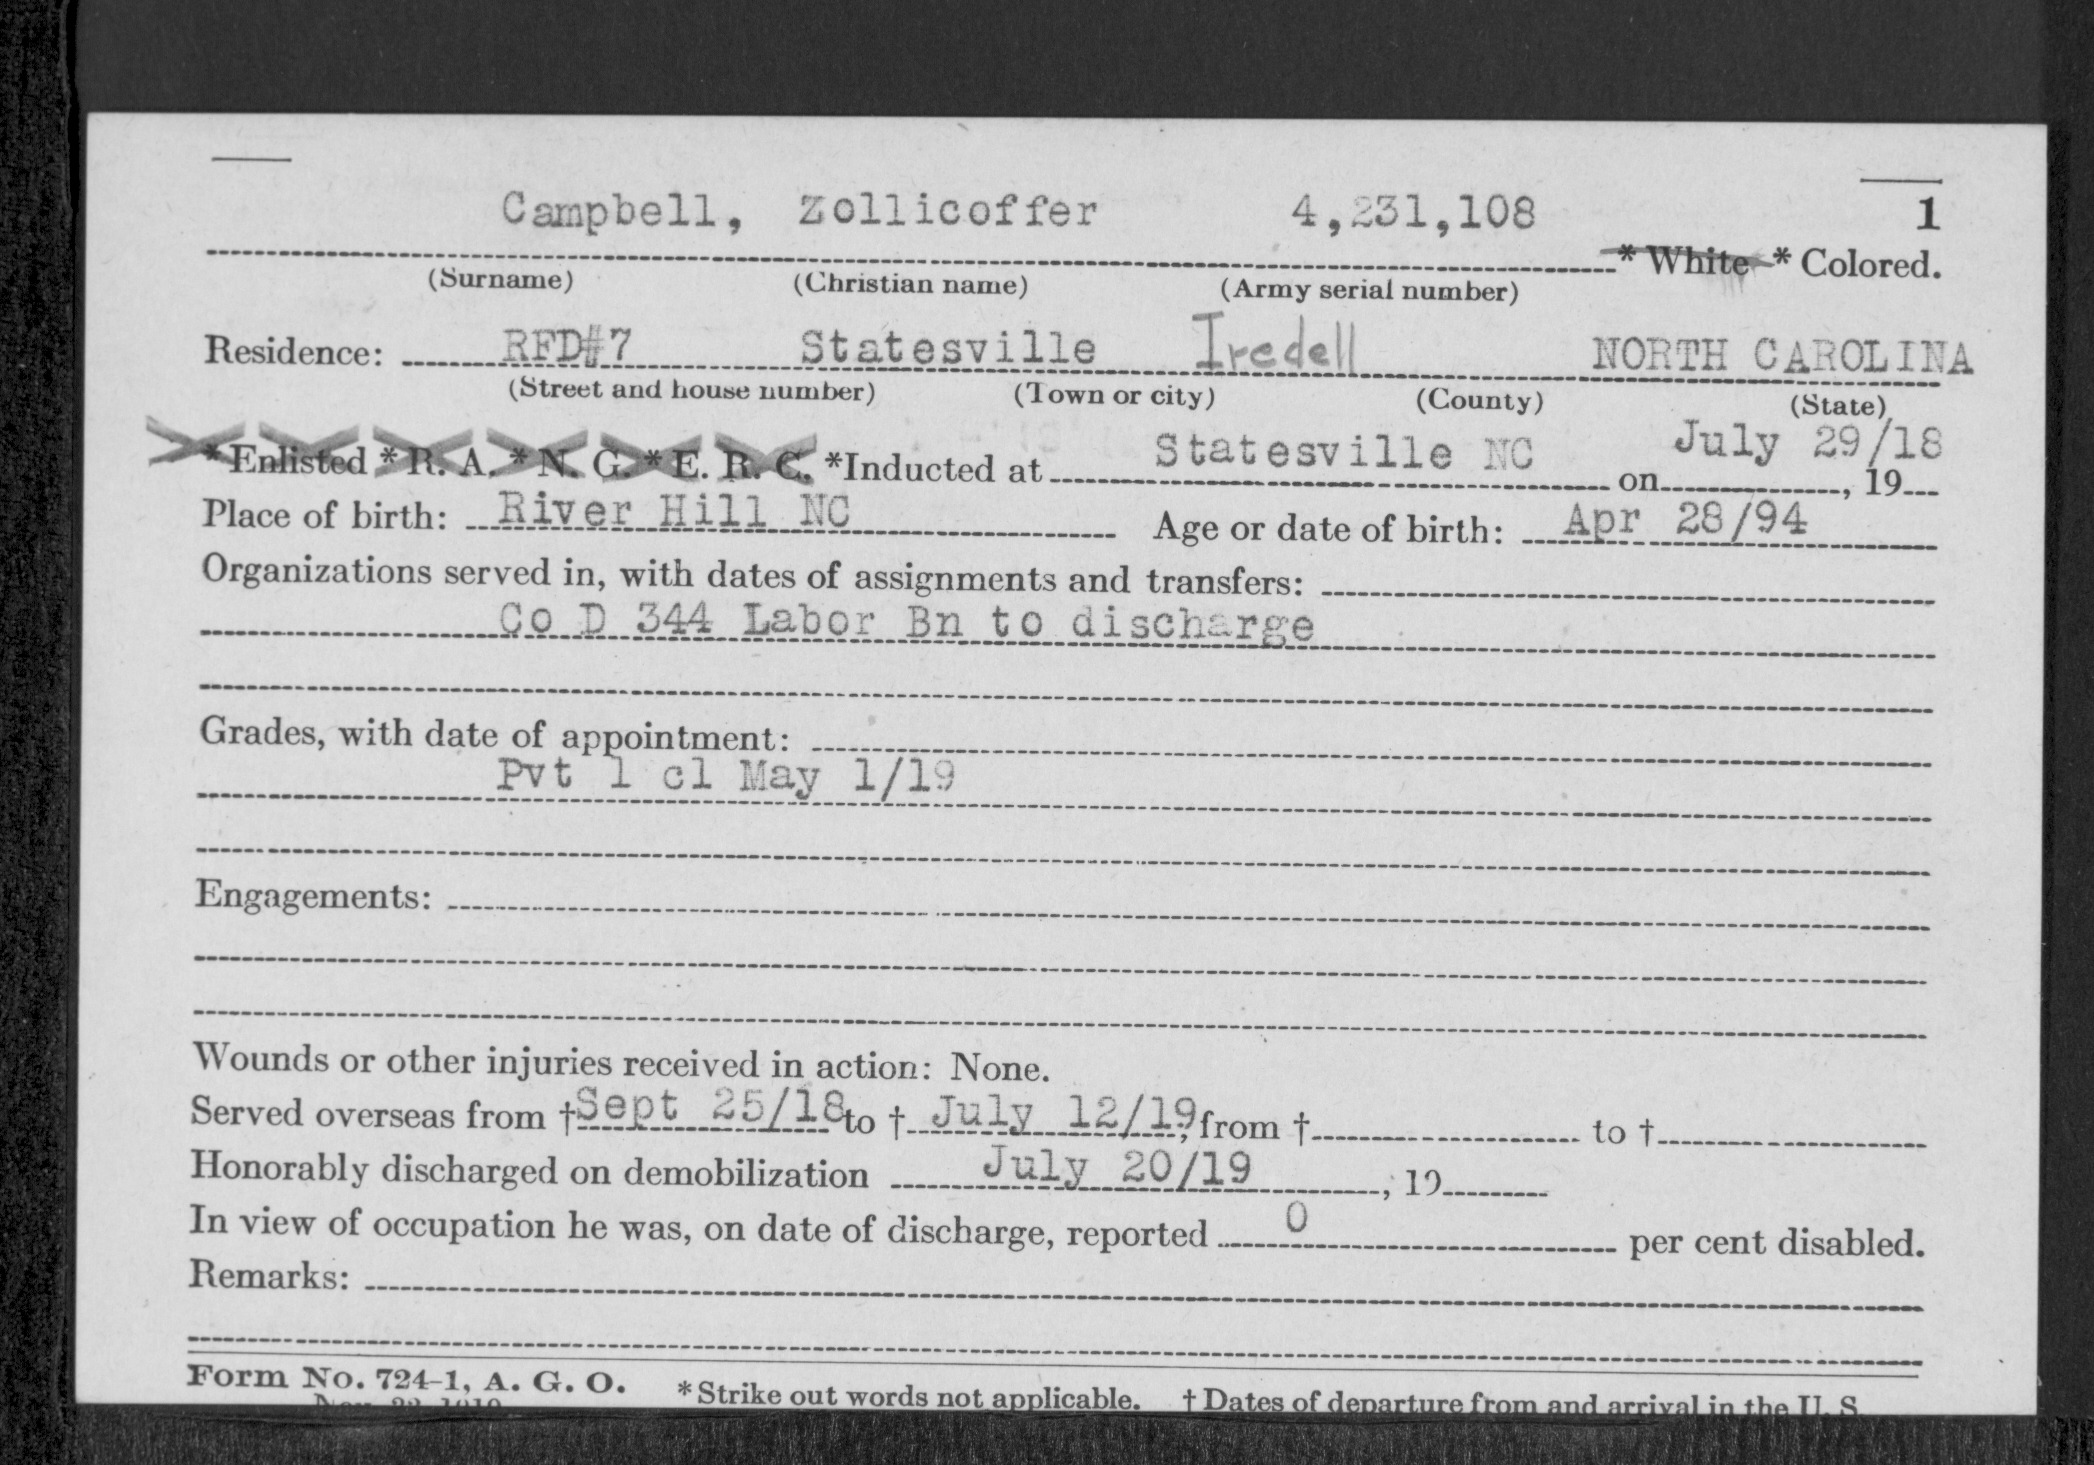 Campbell, Zollicoffer 4,231,108 1
* White * Colored.
(Surname) (Christian name) (Army serial number)
Residence: RFD#7 Statesville Iredell NORTH CAROLINA
(Street and house number) (Town or city) (County) (State)
*Enlisted *R. A. *N. G. *E. R. C. *Inducted at Statesville NC on July 29/18, 19
Place of birth: River Hill NC Age or date of birth: Apr 28/94
Organizations served in, with dates of assignments and transfers:
Co D 344 Labor Bn to discharge
Grades, with date of appointment:
Pvt 1 cl May 1/19
Engagements:
Wounds or other injuries received in action: None.
Served overseas from † Sept 25/18 to † July 12/19, from † to †
Honorably discharged on demobilization July 20/19, 19
In view of occupation he was, on date of discharge, reported 0 per cent disabled.
Remarks:
Form No. 724-1, A. G. O. *Strike out words not applicable. † Dates of departure from and arrival in the U. S.